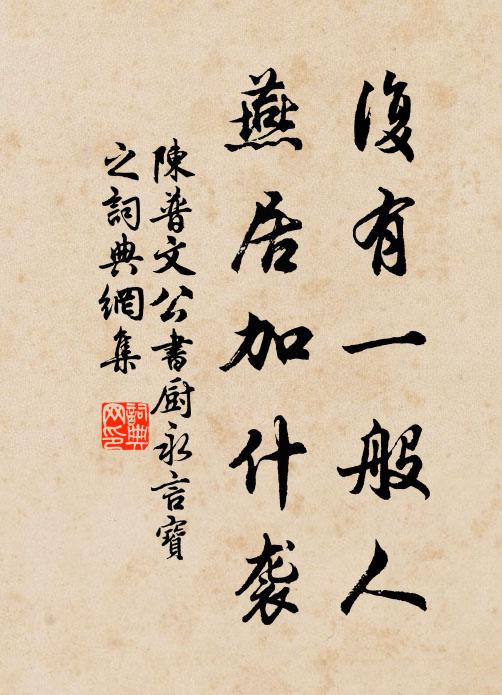 復有一般人
燕居加什袭
陳普文公書厨永言寶
之詞典網集
詞典网印